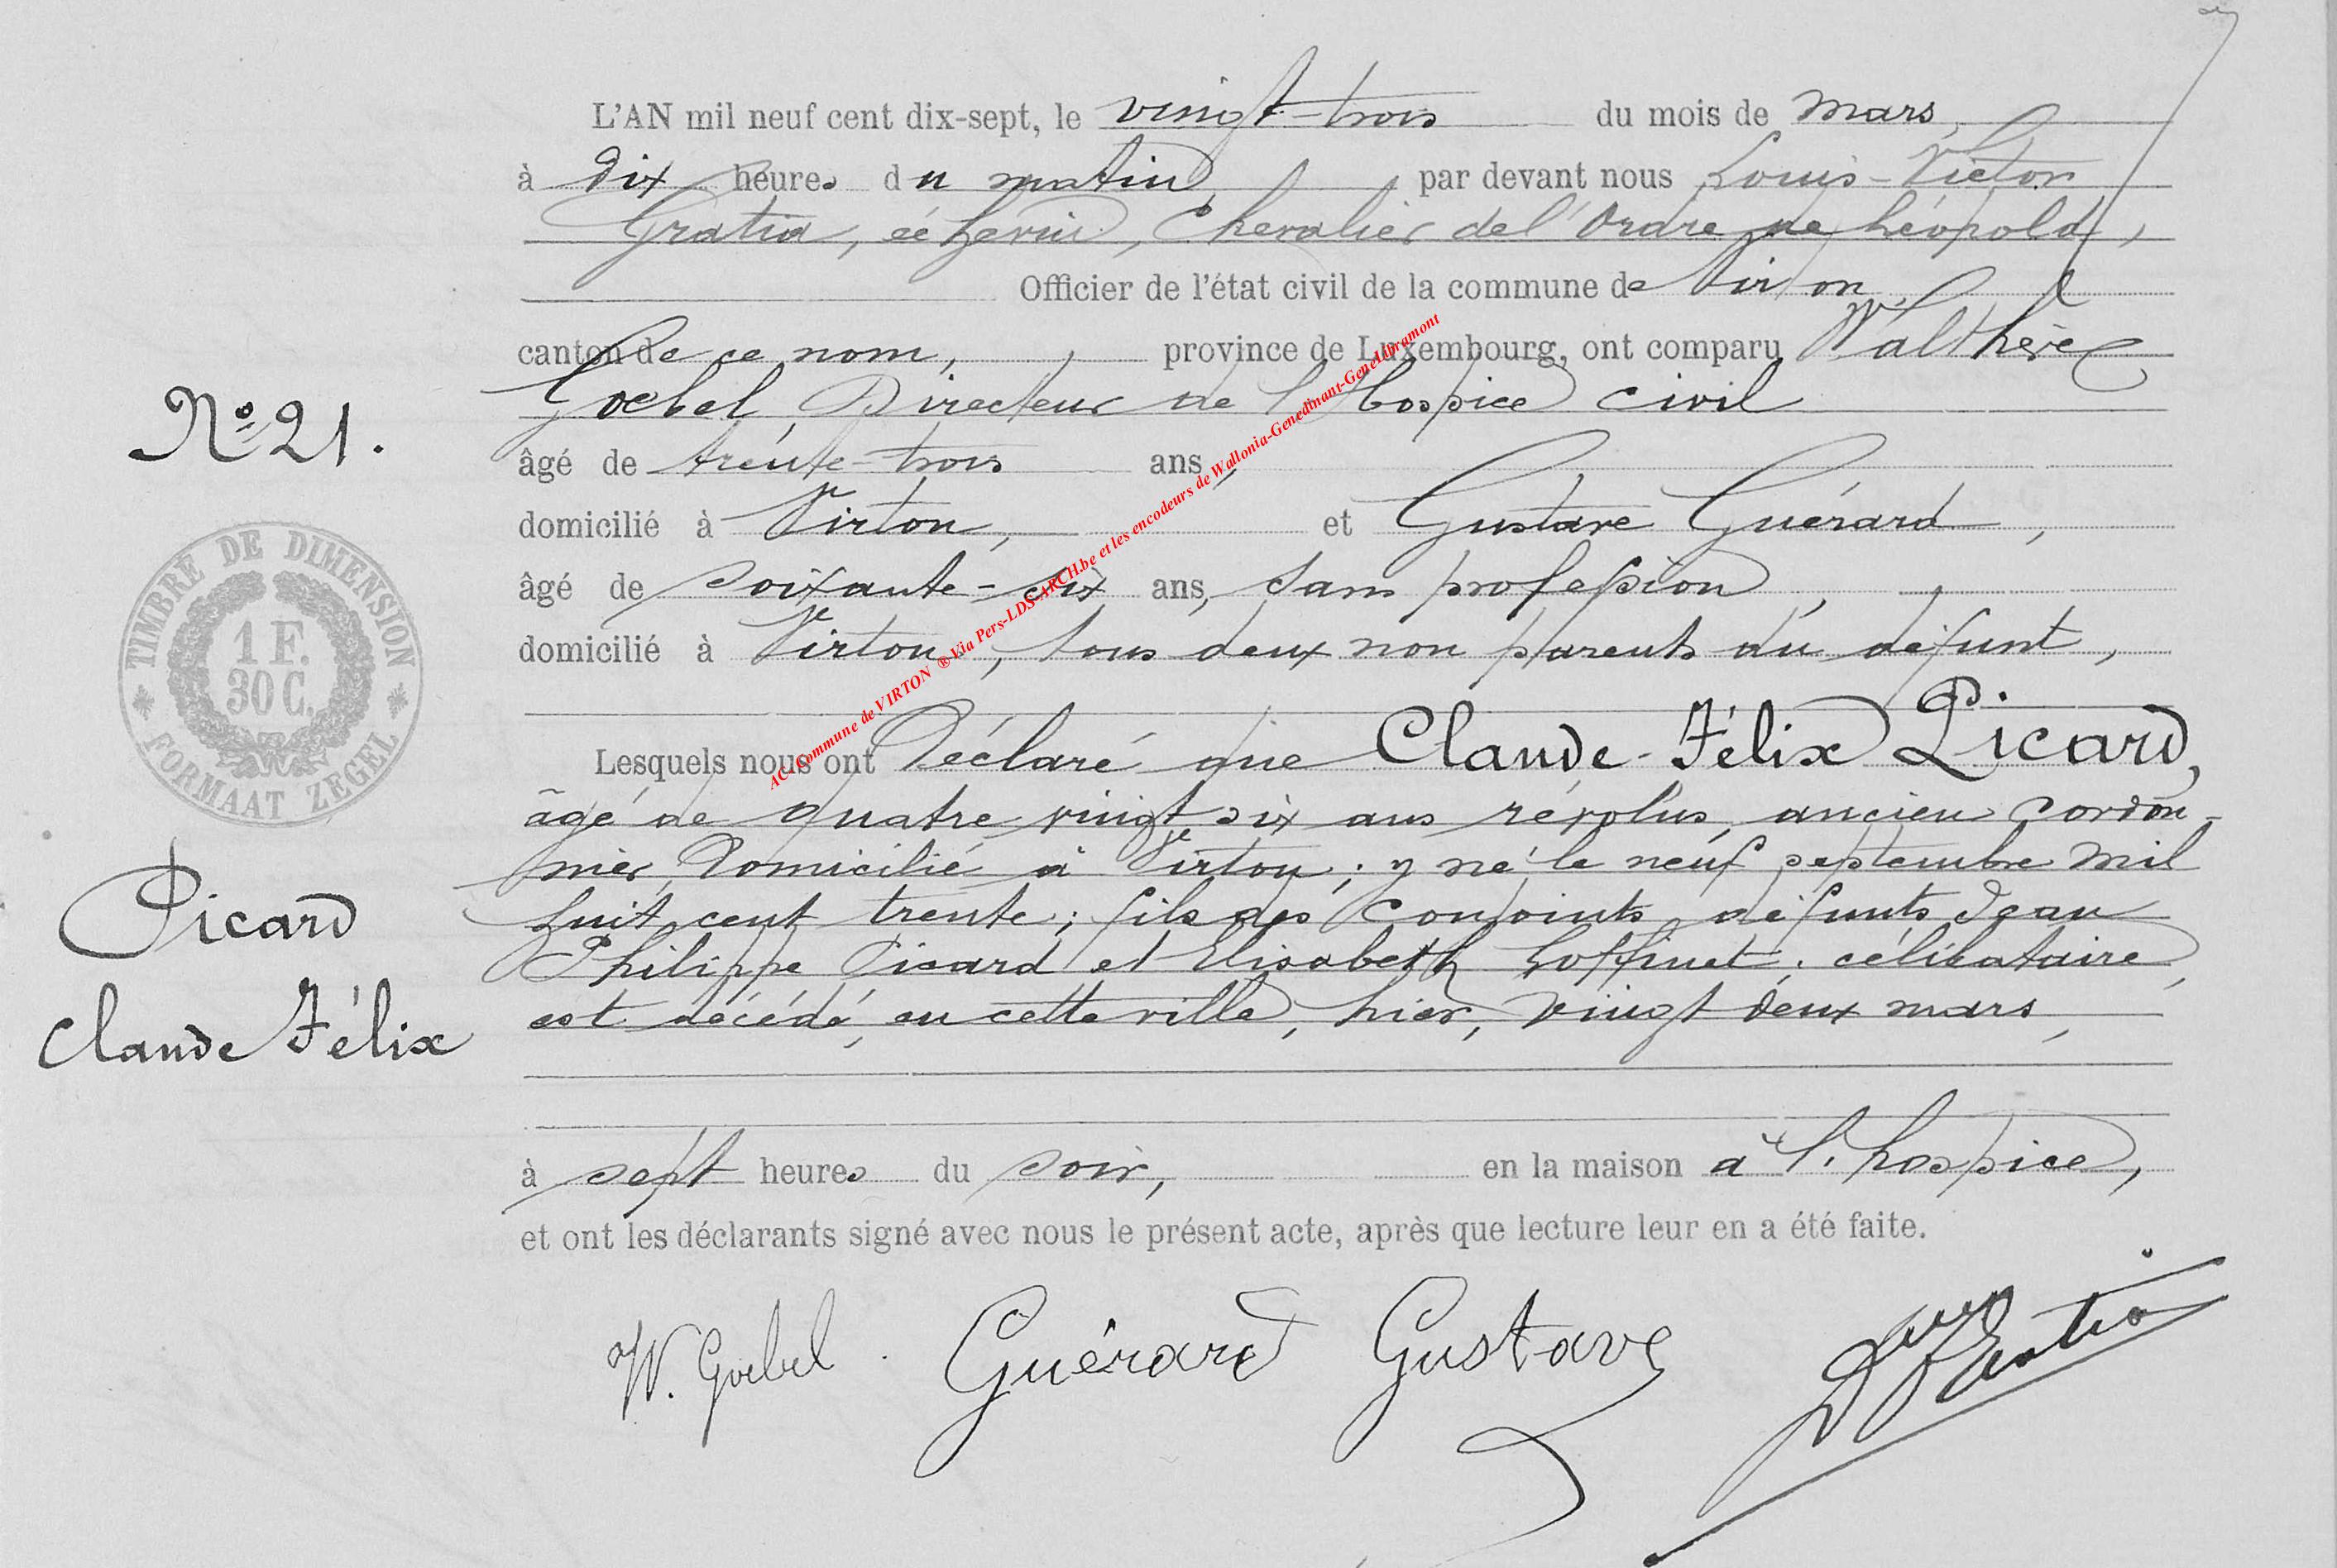 L'AN mil neuf cent dix-sept, le vingt-trois du mois de mars,
à dix heures du matin, par devant nous Louis-Victor
Gratia, échevin, Chevalier de l'Ordre de Léopold,
Officier de l'état civil de la commune de Virton,
canton de ce nom, province de Luxembourg, ont comparu Walthère
Goebel, Directeur de l'Hospice civil
âgé de trente-trois ans,
domicilié à Virton, et Gustave Guérard,
âgé de soixante-six ans, sans profession,
domicilié à Virton, tous deux non parents du défunt,
Lesquels nous ont Déclaré que Claude-Félix Picard,
âgé de quatre vingt six ans révolus, ancien cordon-
nier, Domicilié à Virton; y né le neuf septembre mil
huit cent trente; fils des conjoints défunts Jean
Philippe Picard et Elisabeth Loffinet; célibataire,
est décédé, en cette ville, hier, vingt deux mars,
à sept heures du soir, en la maison à l'hospice,
et ont les déclarants signé avec nous le présent acte, après que lecture leur en a été faite.
W. Goebel. Guérard Gustave Gratia
N° 21.
TIMBRE DE DIMENSION
1 F.
30 C.
FORMAAT ZEGEL
Picard
Claude Félix
AC-Commune de VIRTON ® Via Pers-LDS-ARCH.be et les encodeurs de Wallonia-Genedinant-Genealibramont